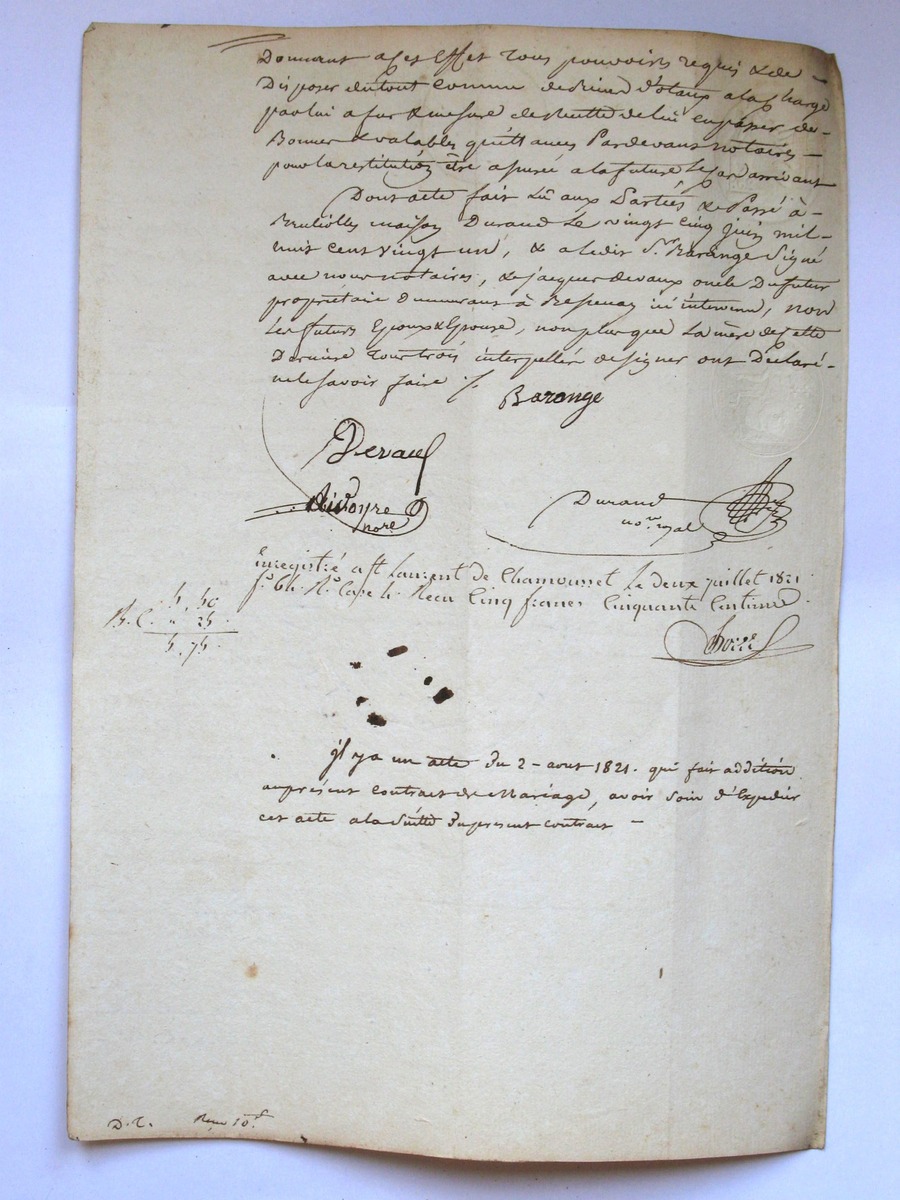 Donnant a cet effet tous pouvoirs requis & de
Disposer du tout comme de Biens dotaux a la Charge
par lui a fur & mesure de recette de lui en passer de
Bonnes & valables quittances Pardevant notaires
pour la restitution être assurée a la future le cas arrivant
Dont acte fait Lû aux Parties & Passé à
Brullioles maison Durand Le vingt cinq juin mil
huit cent vingt un, & a ledit Sr Barange Signé
avec nous notaires, & jacques devaux oncle Du futur
propriétaire Demeurant à ici intervenu, non
Les futurs Epoux & Epouse, non plus que La mère de cette
Derniere Tous trois interpellés de signer ont Déclaré
ne le savoir faire
Barange
Devaux
Aivoyre
nore
Durand
nore royal
Enregistré a St Laurent de Chamousset Le deux juillet 1821
fo Ro Case Recu Cinq francs Cinquante Centimes
5. 50
" 25.
5. 75
jl y a un acte Du 2 - aout 1821. qui fait addition
au présent Contrat de Mariage, avoir Soin d'Expedier
cet acte a la Suitte Du present contrat -
D. C.
Reçu 10f